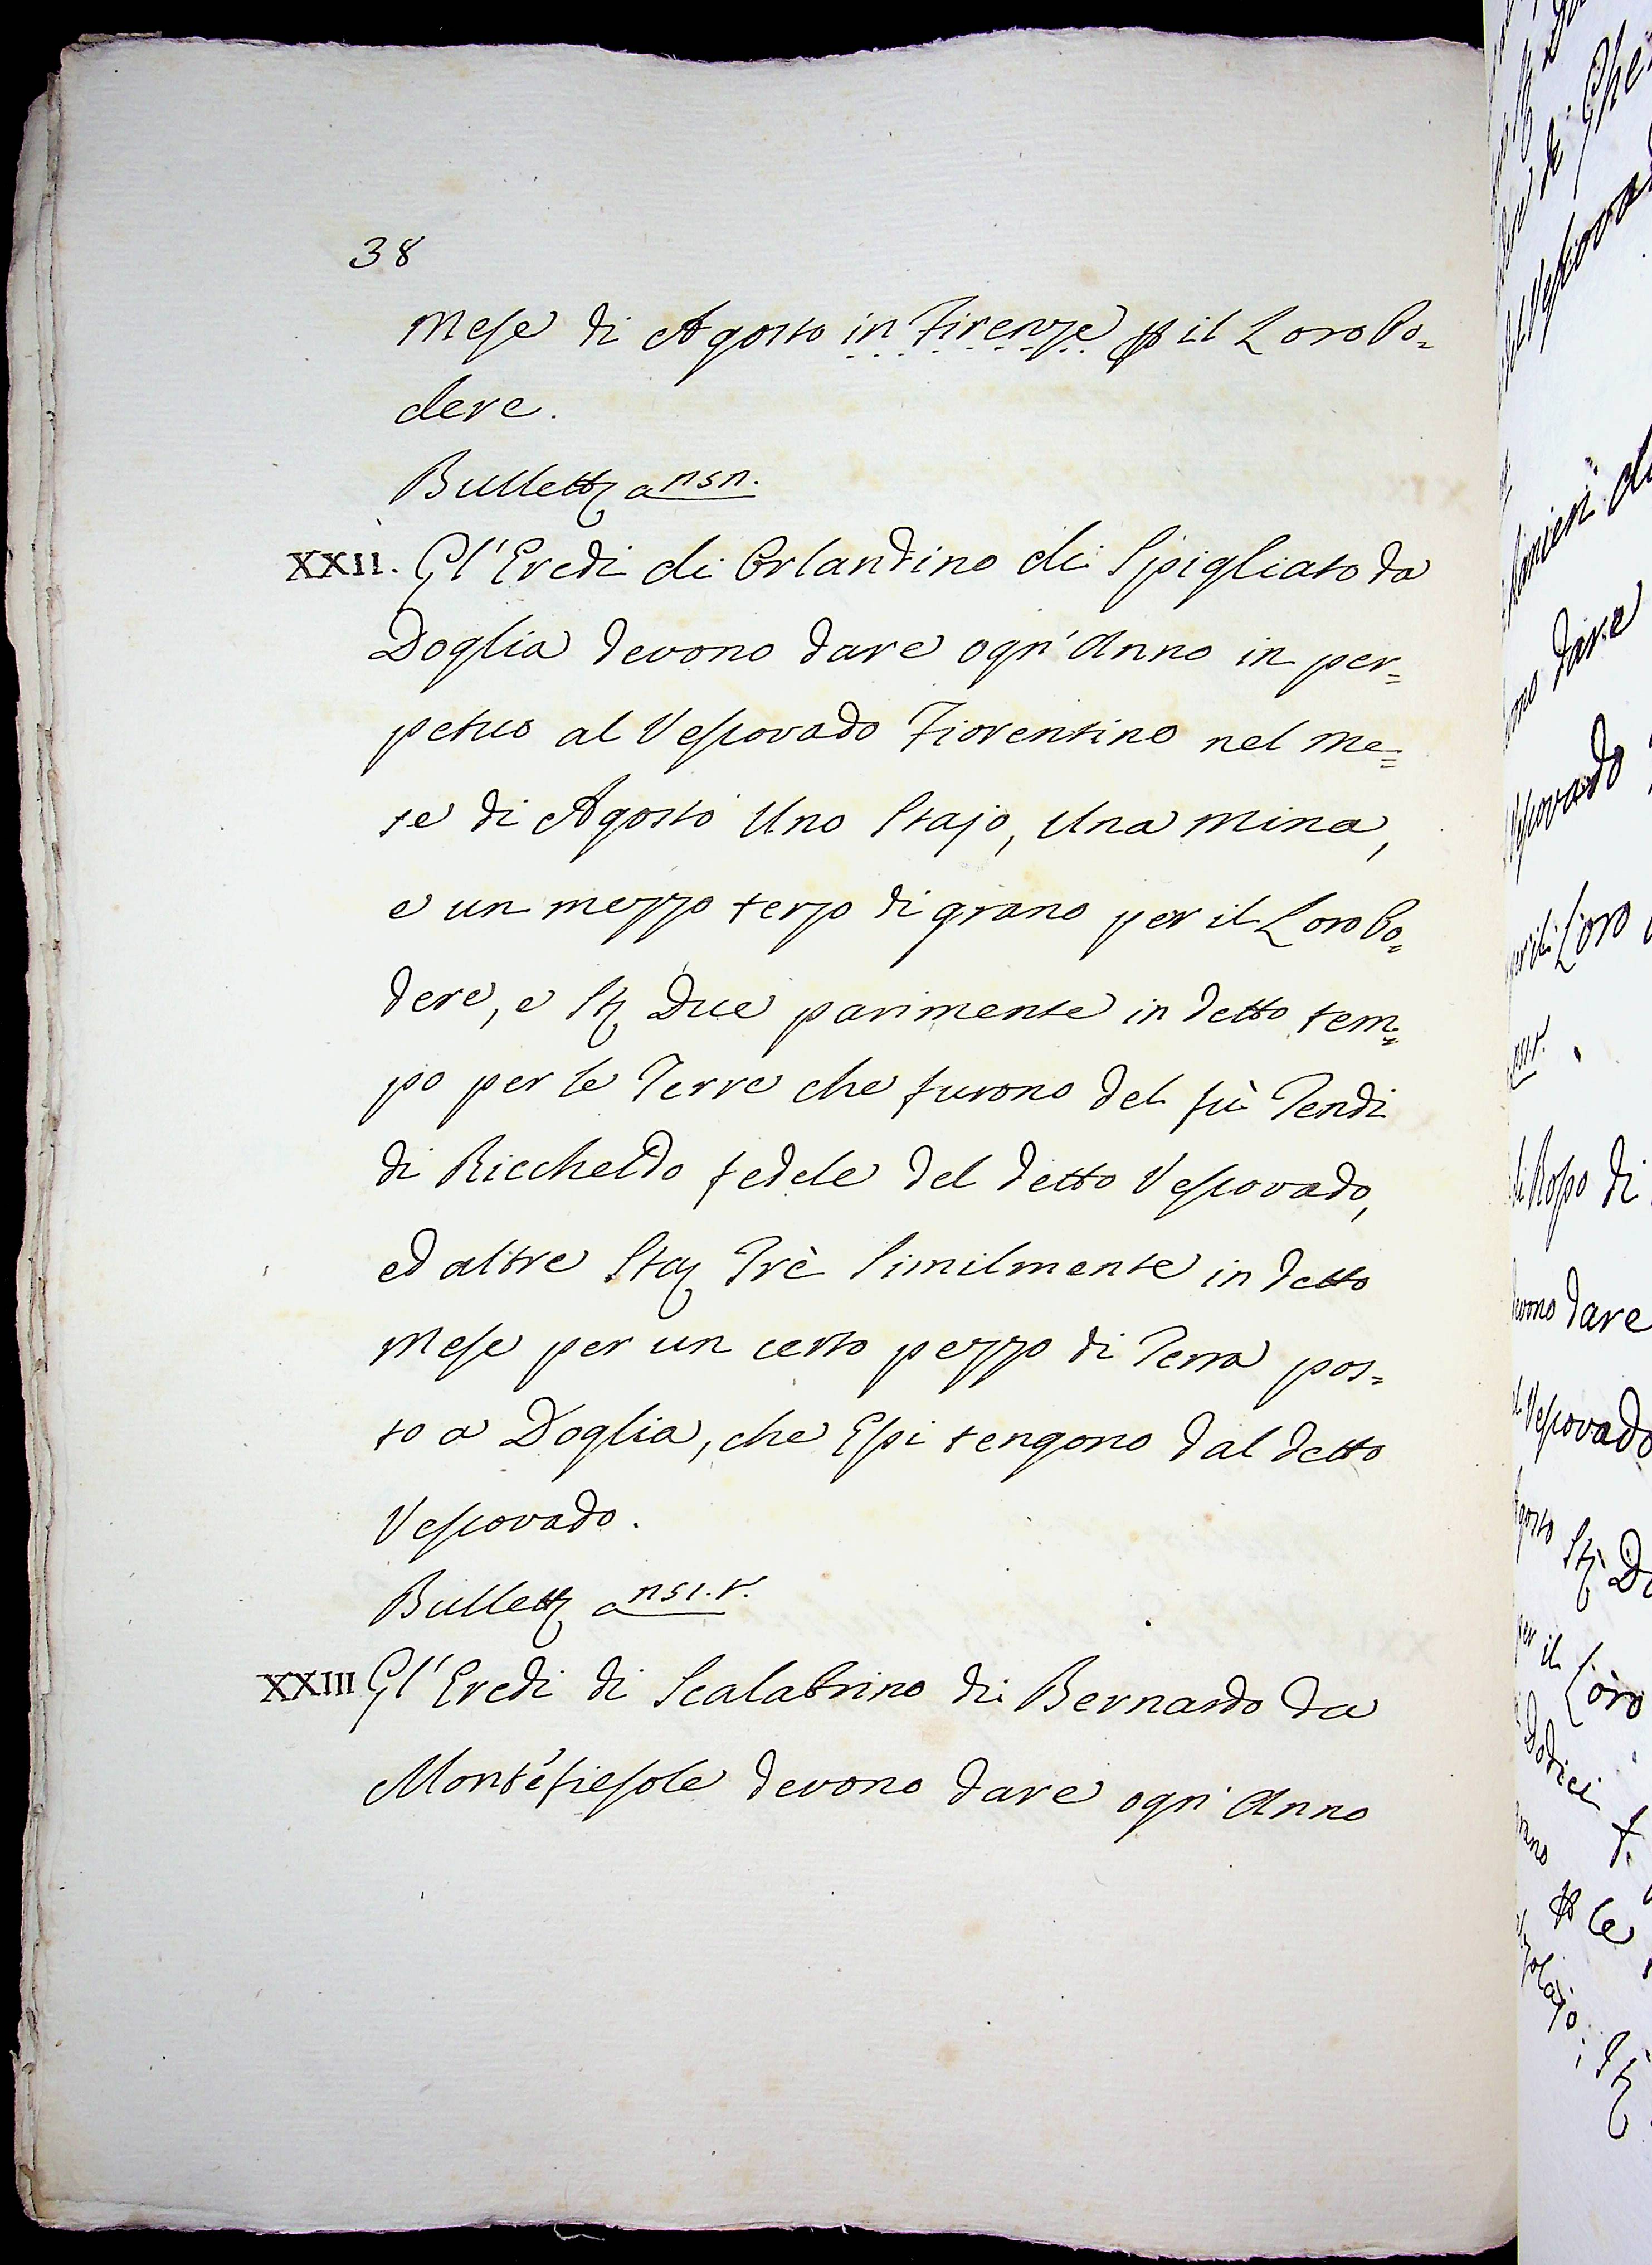 38
Mese di Agosto in Firenze p il Loro Po=
dere.
Bullett a nsn.
XXII. Gl'Eredi di Orlandino di Spigliato da
Doglia devono dare ogn'Anno in per=
petuo al Vescovado Fiorentino nel me=
se di Agosto Uno Stajo, Una Mina,
e un mezzo terzo di grano per il Loro Po=
dere, e St Due parimente in detto tem=
po per le Terre che furono del fù Tendi
di Riccheldo fedele del detto Vescovado,
ed altre Sta Trè Similmente in detto
Mese per un certo pezzo di Terra pos=
to a Doglia, che Essi tengono dal detto
Vescovado.
Bullett a
XXIII Gl'Eredi di Scalabrino di Bernardo da
Monte'fiesole devono dare ogn'Anno
dare
Vescovado
Loro
di Rosso di
devono dare
Vescovado
Agosto
per il Loro
Dodici
le